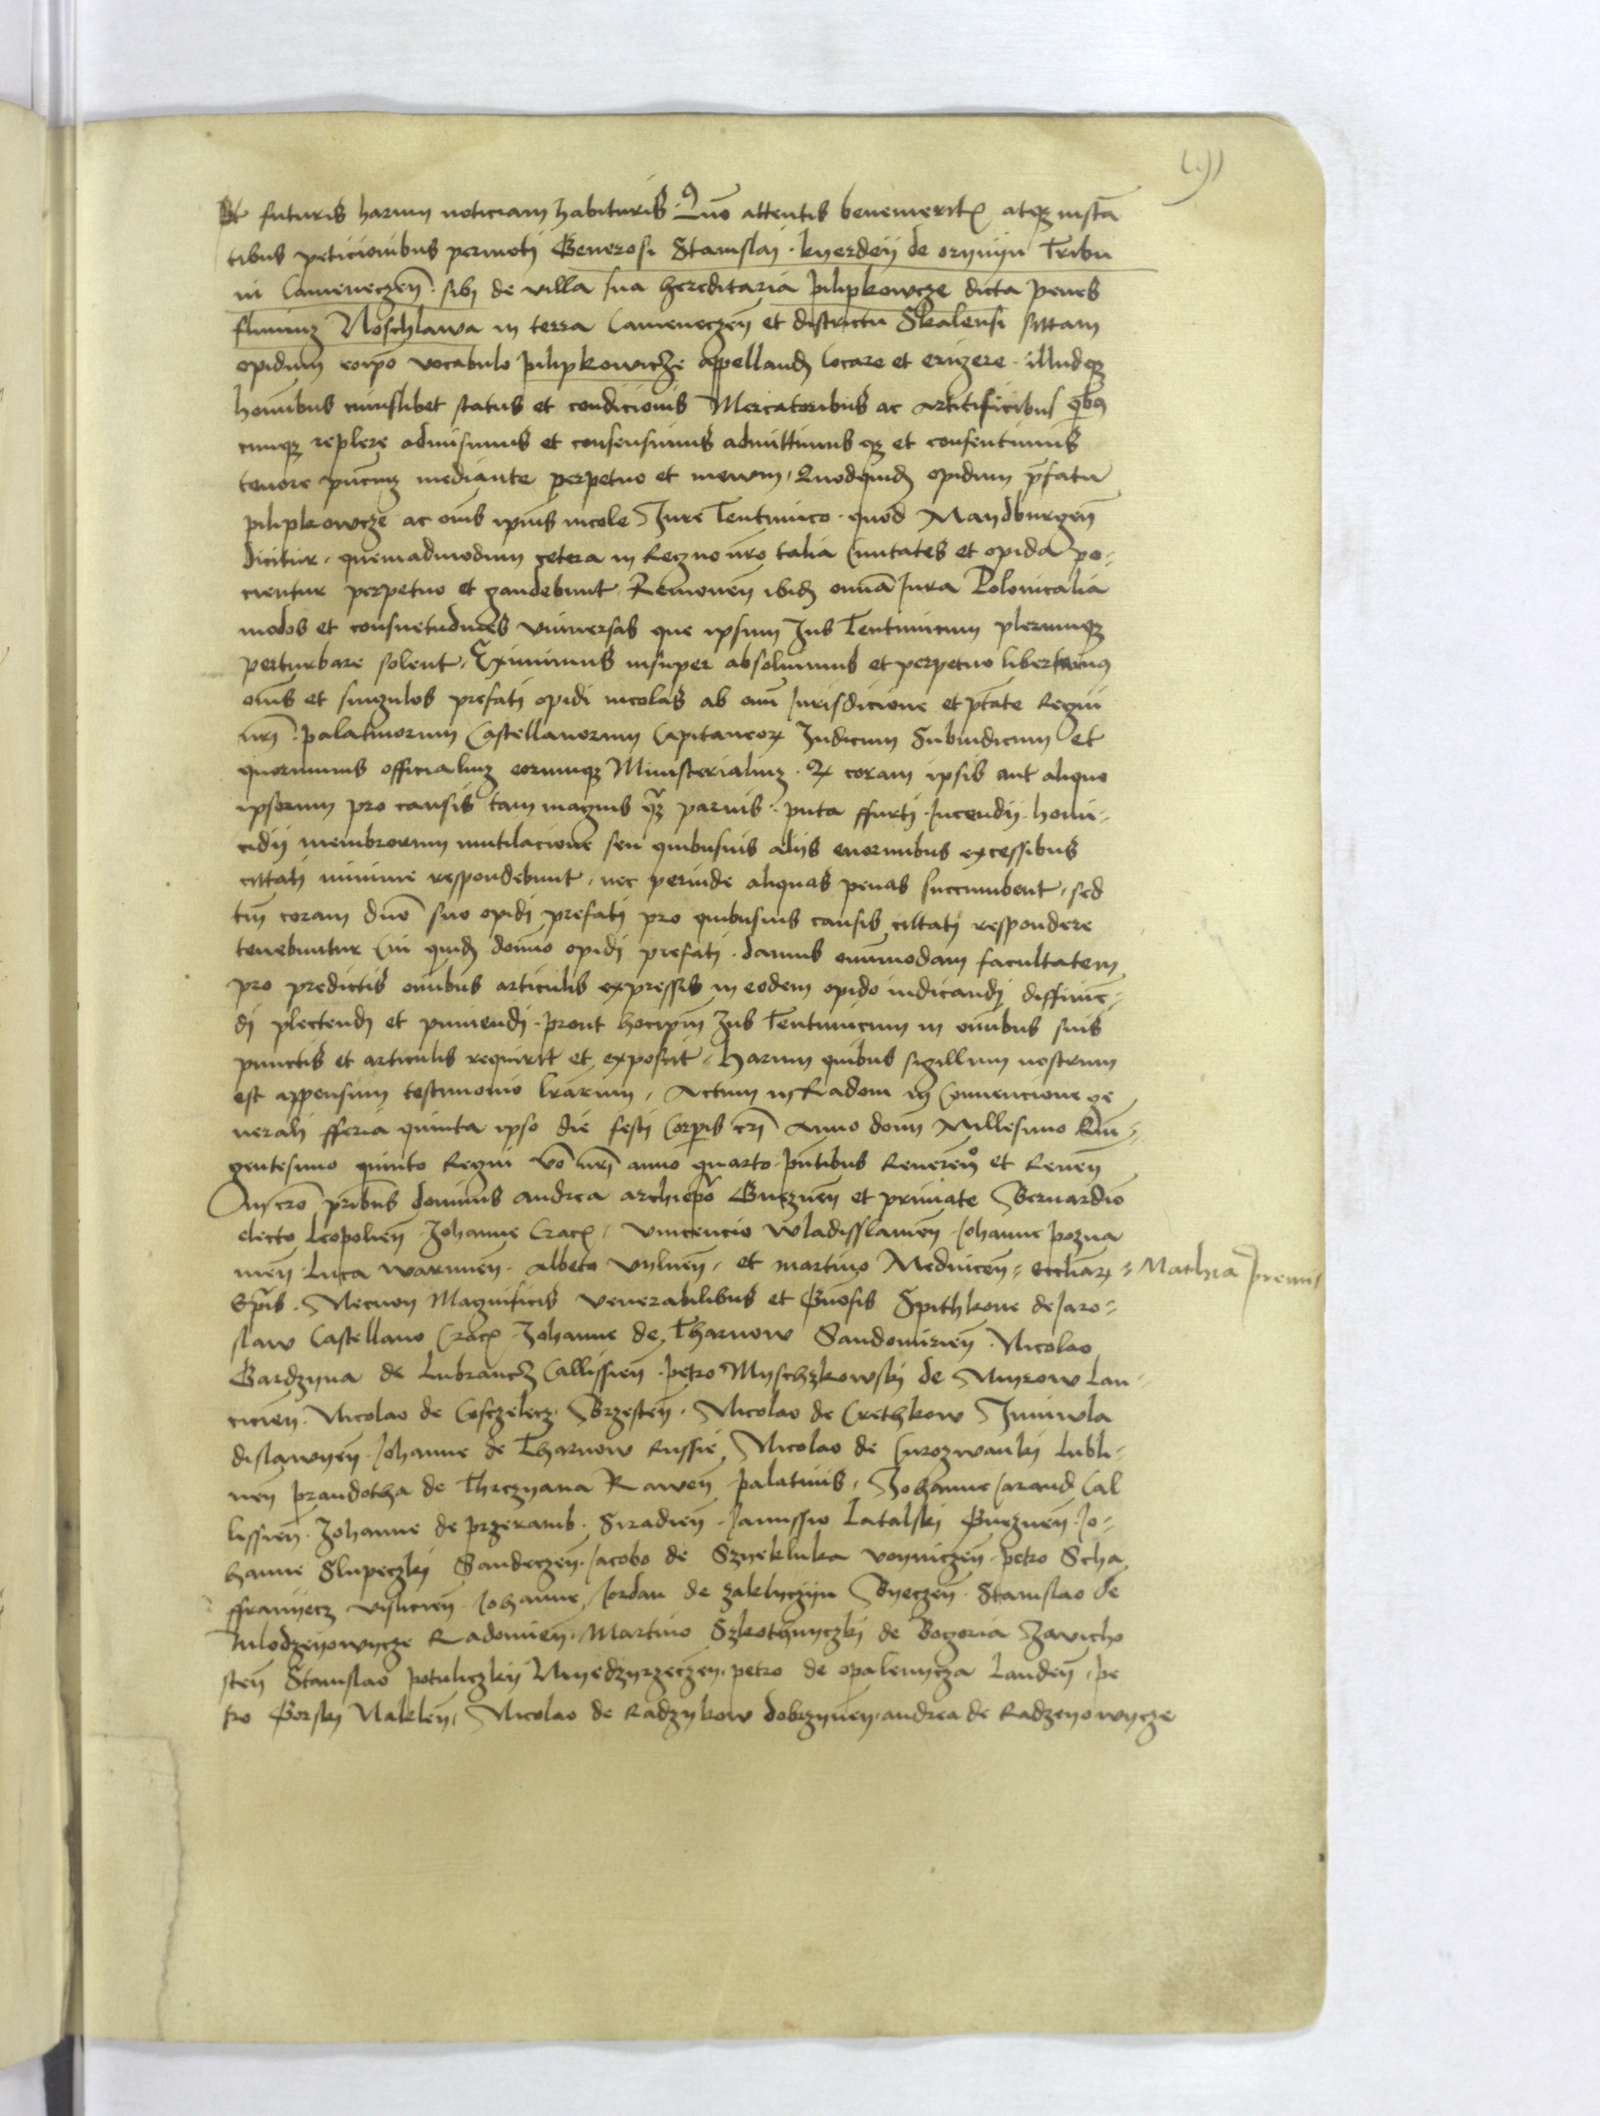 et futuris harum noticiam habituris. Quō attentis benemeritꝭ atqꝫ instā
tibus peticionibus permoti Generosi Stanislai kyerdeÿ de orynyn Tribu
ni Cameneczeñ. sibi de villa sua hereditaria pilipkowcze dicta penes
fluuiuꝫ Noschlawa in terra Cameneczeñ et districtu Skalensi sittam
opidum eoıpō vocabulo pilipkowicze appellandꝫ locare et erigere. illudqꝫ
hominibus cuiuslibet status et condicionis Mercatoribus ac Artificibus qbꝯ
cunqꝫ replere admisimus et consensimus admittimus qꝫ et consentimus
tenore pñciuꝫ mediante perpetuo et in ewm. Quodquidꝫ opidum p̄fatū
pilipkowcze ac oms ipius incole Jure Teutunico quod Maydburgeñ
dicitur. quemadmodum cetera in Regno nr̄o talia Ciuitates et opida po-
cientur perpetuo et gaudebunt. Remoueñ ibidꝫ omīa Jura Polonicalia
modos et consuetudines vniuersas que ipsum Jus Teutunicum plerumqꝫ
perturbare solent. Eximimus insuper absoluimus et perpetuo libertamꝯ
oms et singulos prefati opidi incolas ab om̄i Jurisdicione et ptāte Regni
nr̄i palatinorum Castellanorum Capitaneoꝝ Judicum Subiudicum et
quorumuis officialiuꝫ eorumqꝫ Ministerialiuꝫ. Qꝫ coram ipsis aut aliquo
ipsorum pro causis tam magnis qꝫ paruis. puta ffurti. Incendii. homi-
cidii membrorum mutilacione seu quibusuis aliis enormibus excessibus
cittati minime respondebunt. nec perinde aliquas penas succumbent. sed
tm̄ coram dn̄o suo opidi prefati pro quibusuis causis cittati respondere
tenebuntur Cui quidꝫ domino opidi prefati. damus omnimodam facultatem
pro predictis omibus articulis expressis in eodem opido iudicandi diffiniē-
di plectendi et puniendi. prout hocipm̄ Jus Teutunicum in omibus suis
punctis et articulis requirit et exposcit. Harum quibus sigillum nostrum
est appensum testimonio lrarum. Actum in Radom in Conuencione ge
nerali fferia quinta ipso die festi Corpis cr̄i Anno domi Millesimo Quī-
gentesimo quinto Regni vō nr̄i anno quarto. pn̄tibus Reuereñ⁰ et Reueñ
In cr̄o pribus dominis andrea archiepō Gnezneñ et primate Bernardīo
electo Leopolieñ Johanne Cracꝭ. Vincencio Wladislauieñ Johanne pozna
nieñ Luca Warmieñ. Albeto Vilneñ. et martino Mednicen eccliarꝝ Mathia premis
Ep̄is. Necnon Magnificis Venerabilibus et Gn̄osis Spithkone de Jaro-
slaw Castellano Cracꝭ. Johanne de Tharnow Sandomirieñ Nicolao
Gardzyna de Lubrancꝫ Callissieñ. petro Myschzkowski de Myrow Lan-
cicieñ. Nicolao de Cosczelecz Brzesteñ. Nicolao de Crethkow Juniwla
dislawyeñ. Johanne de Tharnow Russie, Nicolao de Curozwanki lubli-
neñ prandotha de Threzyana Raweñ palatinis. Johanne Jarandꝫ Cal
lissieñ. Johanne de przeramb Siradieñ. Janussio Latalski Gnezneñ. Jo-
hanne Slupeczki Sandeczeñ. Jacobo de Szyekluka voyniczeñ petro Scha
ffranyecz visliceñ Johanne Jordan de zakliczyn Byeczeñ. Stanislao de
Mlodzyeyowycze Radomieñ. Martino Szkothnyczki de Bogoria Zawicho
steñ Stanislao potuliczkii Myedzyrzeczeñ. petro de opalenycza Landeñ. pe
tro Gorski Nakleñ. Nicolao de Radzykow dobrzyneñ. andrea de Radzeyowycze